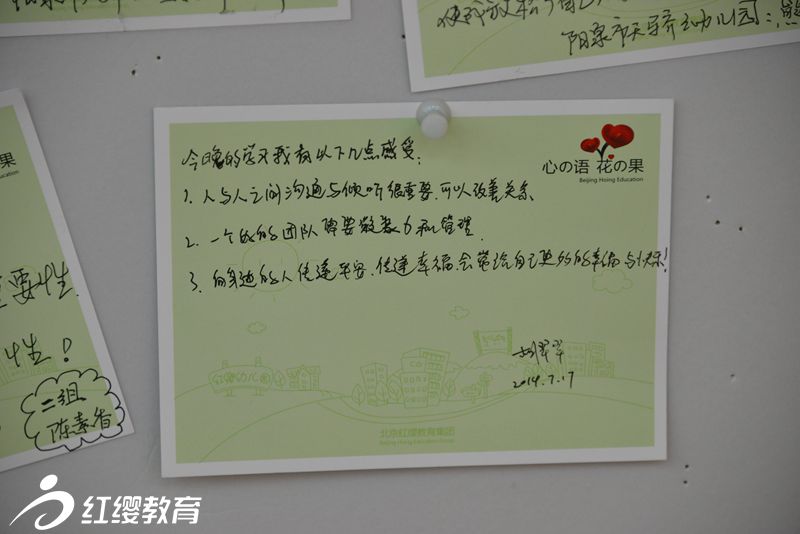 阳泉市天骄幼儿园:
心の语 花の果
Beijing Hoing Education
今晚的学习我有以下几点感受:
1. 人与人之间沟通与倾听很重要,可以改善关系
2. 一个好的团队需要凝聚力和管理
3. 向身边的人传递平安、传递幸福,会带给自己更多的幸福与快乐!
2014.7.17
北京红缨教育集团
Beijing Hoing Education Group
の果
Education
要性
性!
二组
陈素香
红缨教育